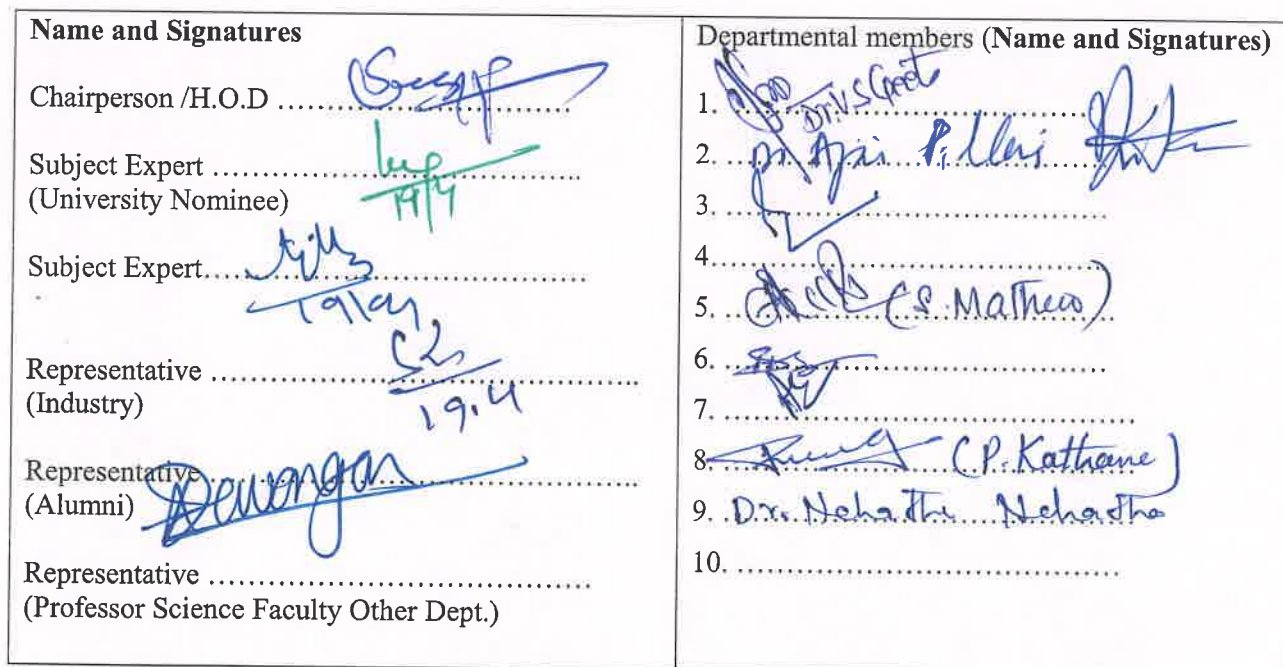 Name and Signatures
Chairperson /H.O.D ..........................
Subject Expert ..........................
19/4
(University Nominee)
Subject Expert..........................
19/04
Representative ..........................
(Industry)
19.4
Representative..........................
Dewangan
(Alumni)
Representative ..........................
(Professor Science Faculty Other Dept.)
Departmental members (Name and Signatures)
1. ..........................
Dr. V.S Geet
2. Dr Ajai Pillai
3. ..........................
4. ..........................
5. (S. Mathew)
6. ..........................
7. ..........................
8. (P. Kathane)
9. Dr. Neha
10. ..........................